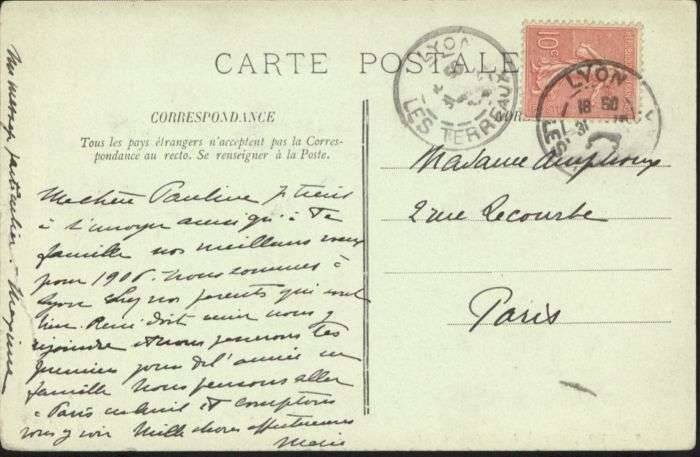 CARTE POSTALE
CORRESPONDANCE
Tous les pays étrangers n'acceptent pas la Corres-
pondance au recto. Se renseigner à la Poste.
Ma chère Pauline je tiens
à t'envoyer ainsi qu'à Ta
famille nos meilleurs vœux
pour 1906. Nous sommes à
Lyon chez nos parents qui vont
bien. René doit venir nous y
rejoindre et nous passerons les
premiers jours de l'année en
famille Nous pensons aller
à Paris et comptons
vous y voir Mille choses affectueuses
Marie
Madame Amphoux
2 rue Lecourbe
Paris
LYON
LES TERREAUX
10
LYON
18 50